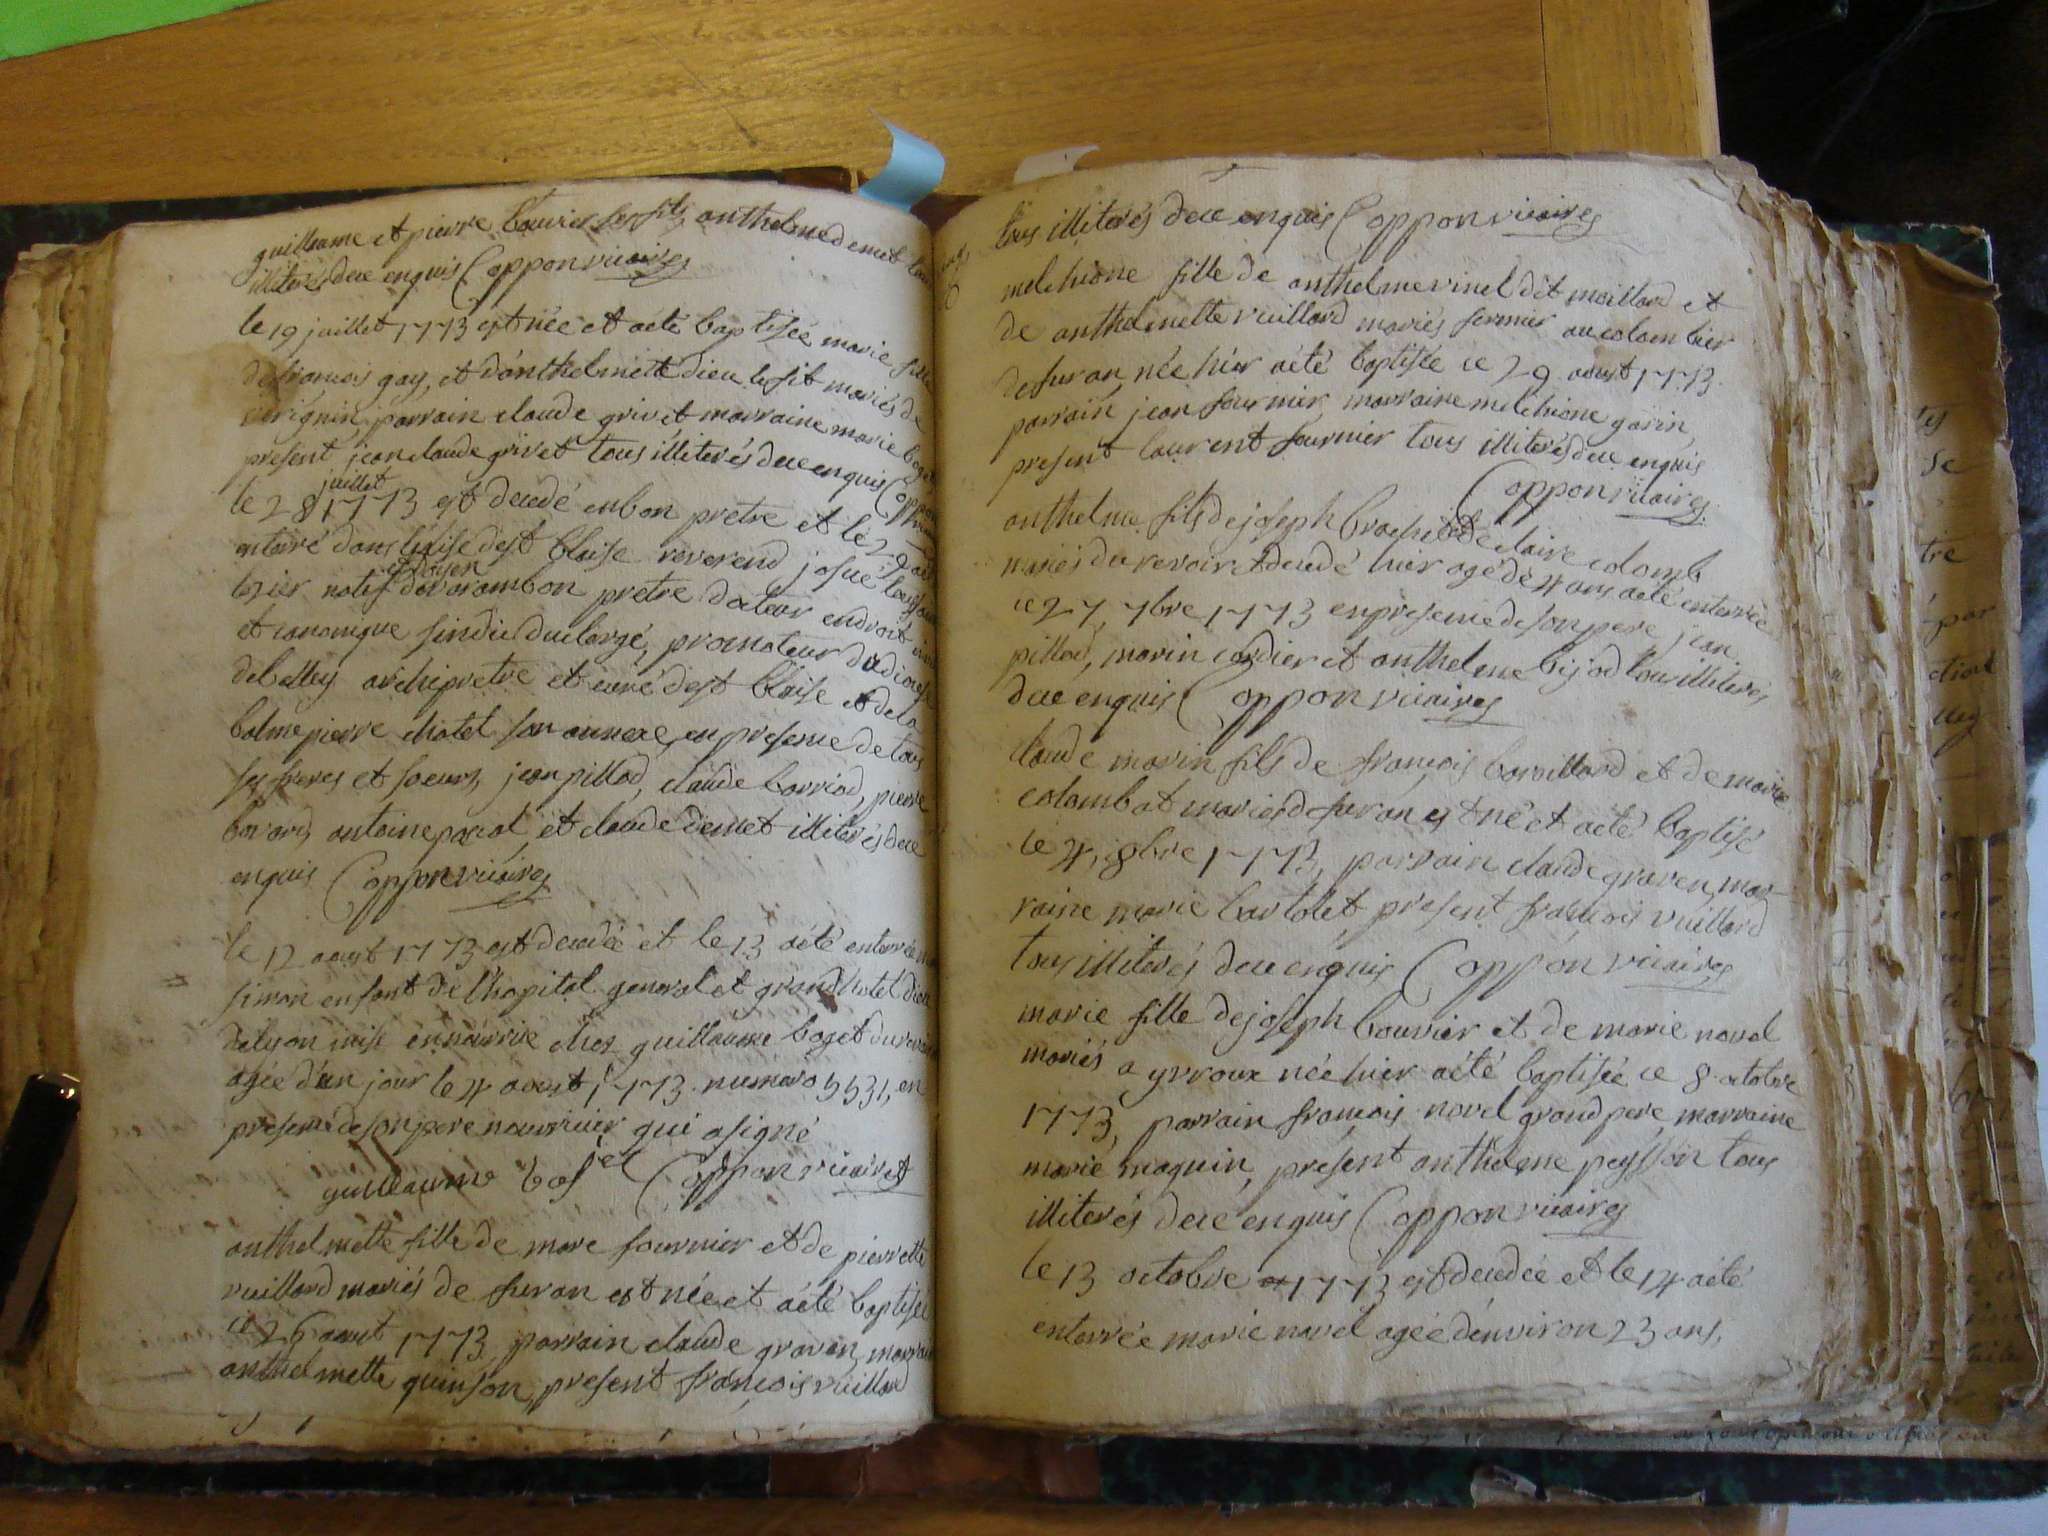 guillaume et pierre bouvier ses fils anthelme demet tous
illiterés de ce enquis Coppon vicaires
le 19 juillet 1773 est née et a eté baptisée marie fille
de francois gay, et d'anthelmette dieu le fit mariés de
parrain claude grivet marraine marie boget
present jean claude grivet tous illiterés de ce enquis Coppon
le 28 juillet 1773 est decedé en bon pretre et le 29 a eté
enterré dans l'eglise de st blaise reverend josué
natif d'arambon pretre docteur en droit
et canonique sindic du clergé, promoteur du diocese
de belley archipretre et curé de st blaise et de la
balme pierre chatel son annexe, en presence de tous
ses freres et soeurs, jean pillod, claude borriod, pierre
bovard, antoine parat, et claude demet illiterés de ce
enquis Coppon vicaires
le 12 aoust 1773 est decedée et le 13 a eté enterrée
simon enfant de l'hopital general et grand hotel dieu
de lyon mise en nourrice ches guillaume boget du revoir
agée d'un jour le 4 aoust 1773 numero 5531, en
presence de son pere nourricier qui a signé
guillaume bosjet Coppon vicaires
anthelmette fille de marc fournier et de pierrette
vuillard mariés de suran est née et a eté baptisée
ce 26 aout 1773, parrain claude graven, marraine
anthelmette quinson, present françois vuillard
tous illiterés de ce enquis Coppon vicaires
melchione fille de anthelme vinel dit maillard et
de anthelmette vuillard mariés fermier au colombier
de suran, née hier a eté baptisée ce 29 aoust 1773
parrain jean fournier, marraine melchione garin,
present laurent fournier tous illiterés de ce enquis
Coppon vicaires
anthelme fils de joseph brachet et de claire colomb
mariés du revoir decedé hier agé de 4 ans a eté enterré
ce 27, 7bre 1773 en presence de son pere, jean
pillod, marin cordier et anthelme bijod tous illiterés
de ce enquis Coppon vicaires
claude marin fils de françois barvillard et de marie
colombat mariés de suran est né et a eté baptisé
le 4, 8bre 1773, parrain claude graven, mar-
raine marie burtolet, present francois vuillard
tous illiterés de ce enquis Coppon vicaires
marie fille de joseph bouvier et de marie navel
mariés a yrroux née hier a eté baptisée ce 8 octobre
1773, parrain francois navel grand pere, marraine
marie maquin, present anthelme peysson tous
illiterés de ce enquis Coppon vicaires
le 13 octobre 1773 est decedée et le 14 a eté
enterrée marie navel agée d'environ 23 ans,